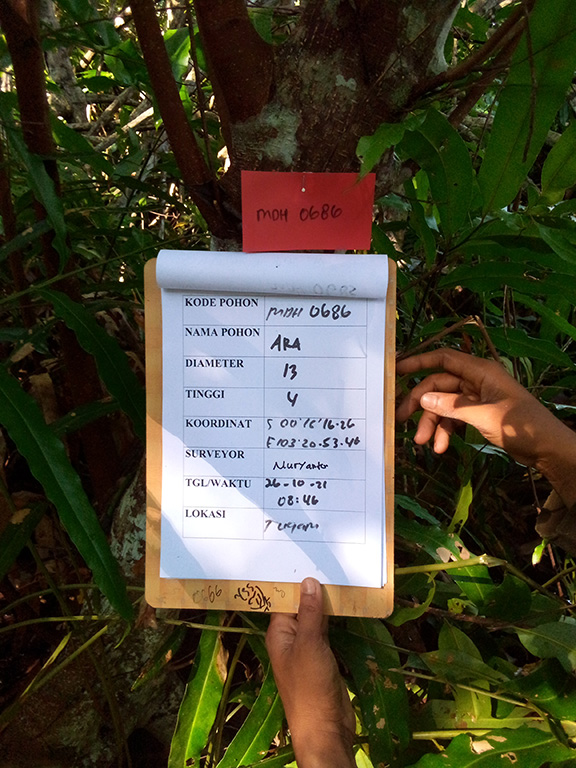 MDH 0686
KODE POHON MDH 0686
NAMA POHON ARA
DIAMETER 13
TINGGI 4
KOORDINAT S 00'
E103.20.53.46
SURVEYOR Nuryanto
TGL/WAKTU 26-10-21
08:46
LOKASI